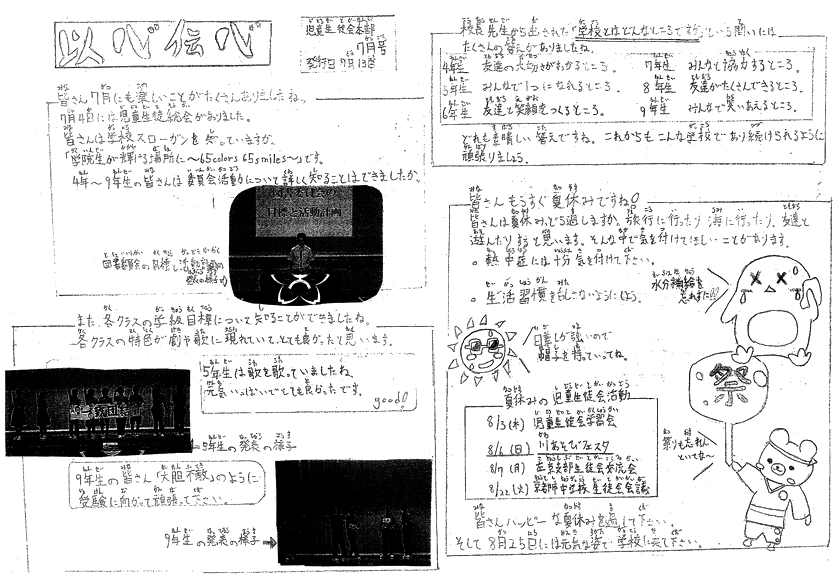 以心伝心
児童生徒会本部
7月号
発行日 7月13日
皆さん7月にも楽しいことがたくさんありましたね。
7月4日には児童生徒総会がありました。
皆さんは学校スローガンを知っていますか。
「学院生が輝ける場所に〜65colors 65smiles〜」です。
4年〜9年生の皆さんは委員会活動について詳しく知ることはできましたか。
図書委員会の
目標と活動計画
図書委員会の目標と活動計画の
発表の様子
また、各クラスの学級目標について知ることができましたね。
各クラスの特色が劇や歌に現れていて、とても良かったと思います。
5年生は歌を歌っていましたね
元気いっぱいでとても良かったです。
good!
5年生の発表の様子
9年生の皆さん「大胆不敵」のように
受験に向かって頑張って下さい。
9年生の発表の様子→
校長先生から出された「学校とはどんなところですか」という問いには
たくさんの答えがありましたね。
4年生 友達の大切さがわかるところ。
5年生 みんなで1つになれるところ。
6年生 友達と笑顔をつくるところ。
7年生 みんなと協力するところ。
8年生 友達がたくさんできるところ。
9年生 みんなで笑いあえるところ。
どれも素晴しい答えですね。これからもこんな学校であり続けられるように
頑張りましょう。
皆さんもうすぐ夏休みですね!
皆さんは夏休み、どう過しますか。旅行に行ったり、海に行ったり、友達と
遊んだりすると思います。そんな中で気を付けてほしいことがあります。
。熱中症には十分気を付けて下さい。
。生活習慣を乱さないようにしよう。
水分補給を
忘れずに!!
日差しが強いので
帽子を持っていってね。
夏休みの児童生徒会活動
8/3(木) 児童生徒会学習会
8/6(日) 川あそびフェスタ
8/7(月) 左京支部生徒会交流会
8/22(火) 京都市中学校生徒会会議
祭
祭りもたのしん
といてな〜
皆さんハッピーな夏休みを過して下さい。
そして8月25日には元気な姿で学校に来て下さい。